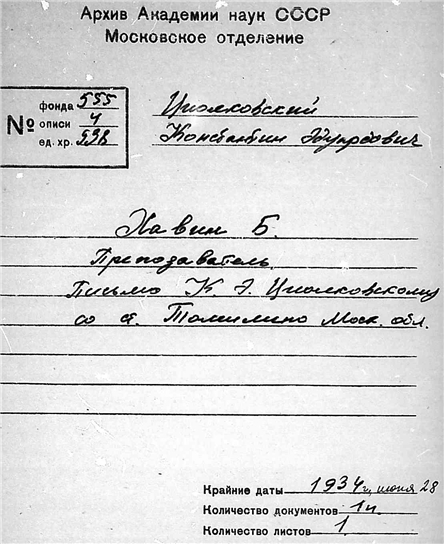 Архив Академии наук СССР
Московское отделение
№
фонда 555
описи 4
ед. хр. 598
Циолковский
Константин Эдуардович
Хавин Б.
Преподаватель.
Письмо К. Э. Циолковскому
со ст. Томилино Моск. обл.
Крайние даты 1934 г., июня 28
Количество документов 1п.
Количество листов 1.